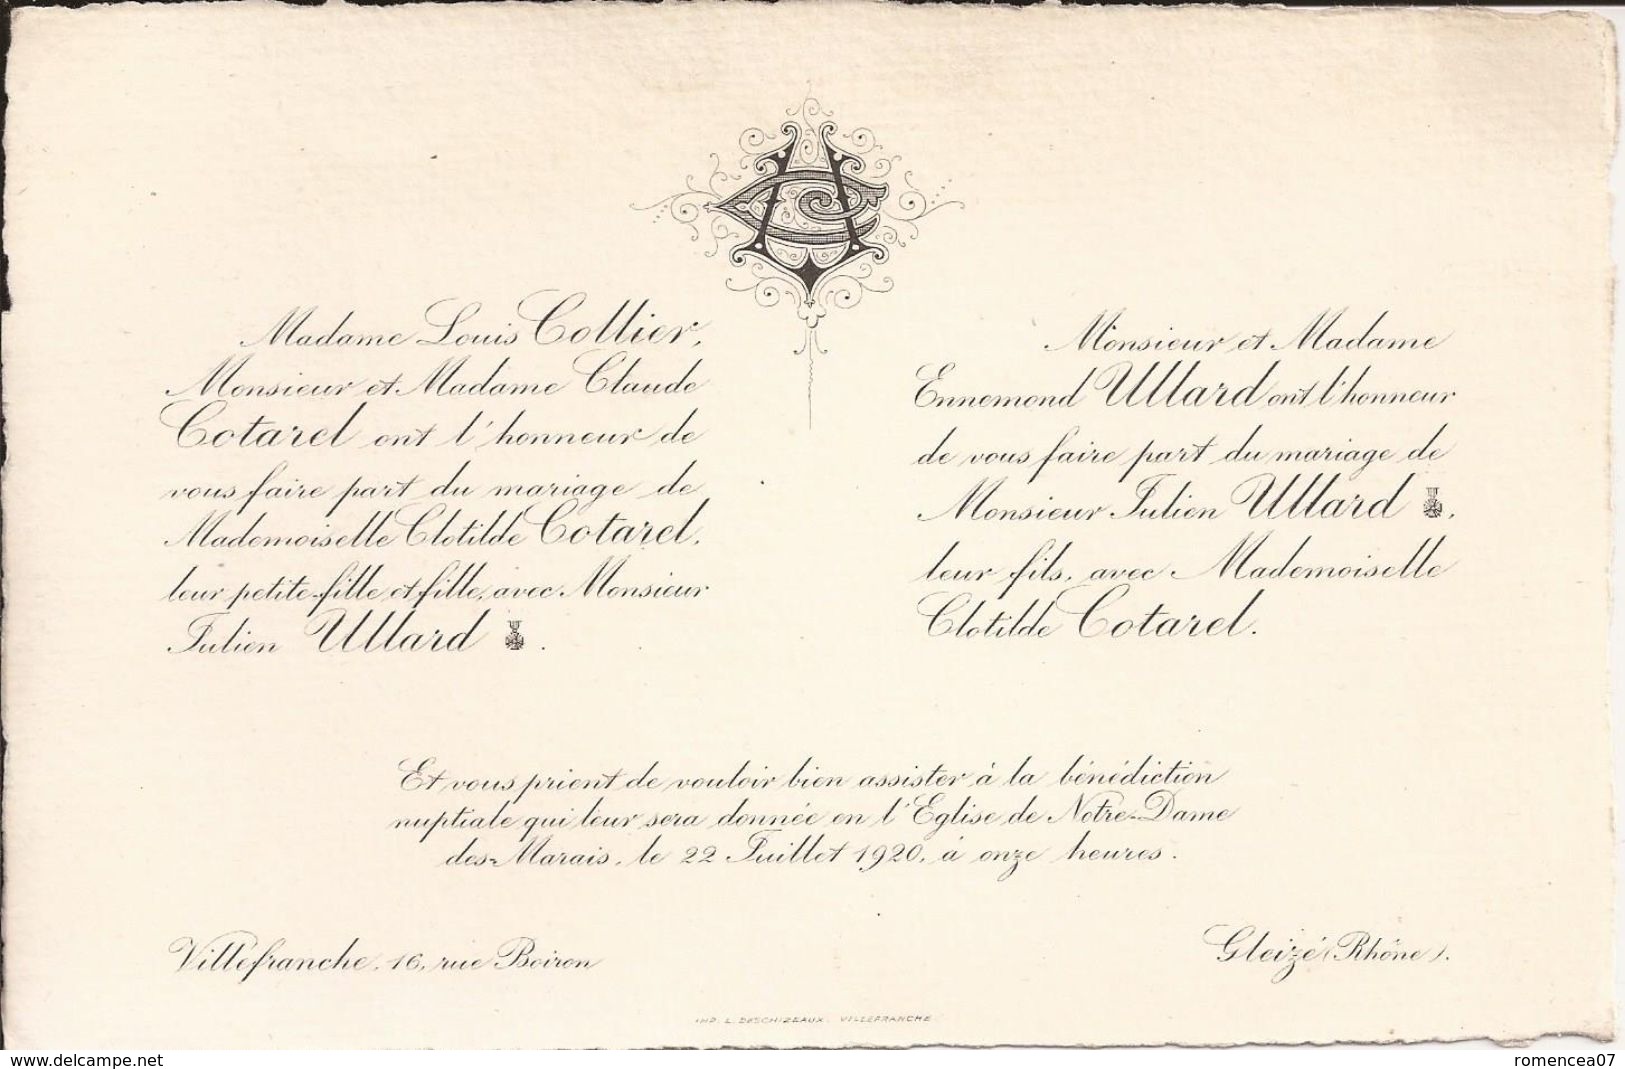 Madame Louis Collier,
Monsieur et Madame Claude
Cotarel ont l'honneur de
vous faire part du mariage de
Mademoiselle Clotilde Cotarel,
leur petite-fille et fille, avec Monsieur
Julien Ullard .
Monsieur et Madame
Ennemond Ullard ont l'honneur
de vous faire part du mariage de
Monsieur Julien Ullard ,
leur fils, avec Mademoiselle
Clotilde Cotarel.
Et vous prient de vouloir bien assister à la bénédiction
nuptiale qui leur sera donnée en l'Eglise de Notre-Dame
des-Marais, le 22 Juillet 1920, à onze heures.
Villefranche, 16, rue Boiron
Gleizé (Rhône).
IMP. L. DESCHIZEAUX. VILLEFRANCHE
www.delcampe.net
romencea07